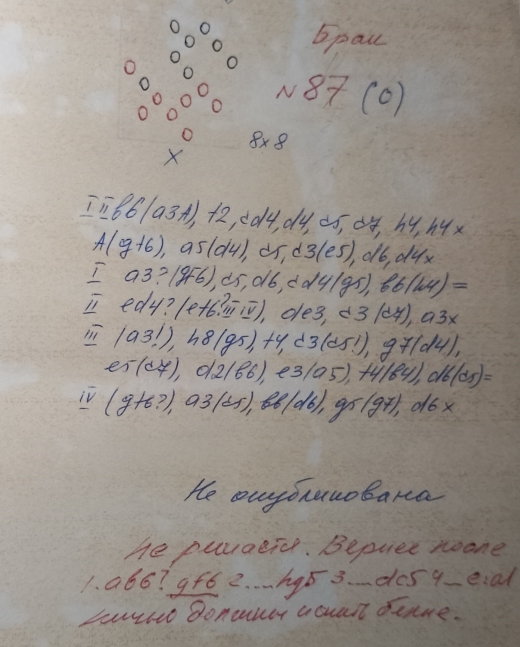 Брак
№87 (0)
8x8
X
I II bb6 (a3A), f2, cd4, d4, c5, c7, h4, h4x
A(gf6), a5(d4), c5, c3(e5), d6, d4x
I a3? (gf6), c5, d6, cd4(g5), bb(h4)=
II ed4? (ef6? III IV), de3, c3(c7), a3x
III (a3!), h8(g5), f4, c3(c5!), g7(d4),
e5(c7), d2(b6), e3(a5), f4(b4), d6(c5)=
IV (gf6?), a3(c5), bb(d6), g5(g7), d6x
Не опубликована
Не решается. Вернее после
1. ab6? gf6 2.... hg5 3... dc5 4...
ничью должны искать белые.